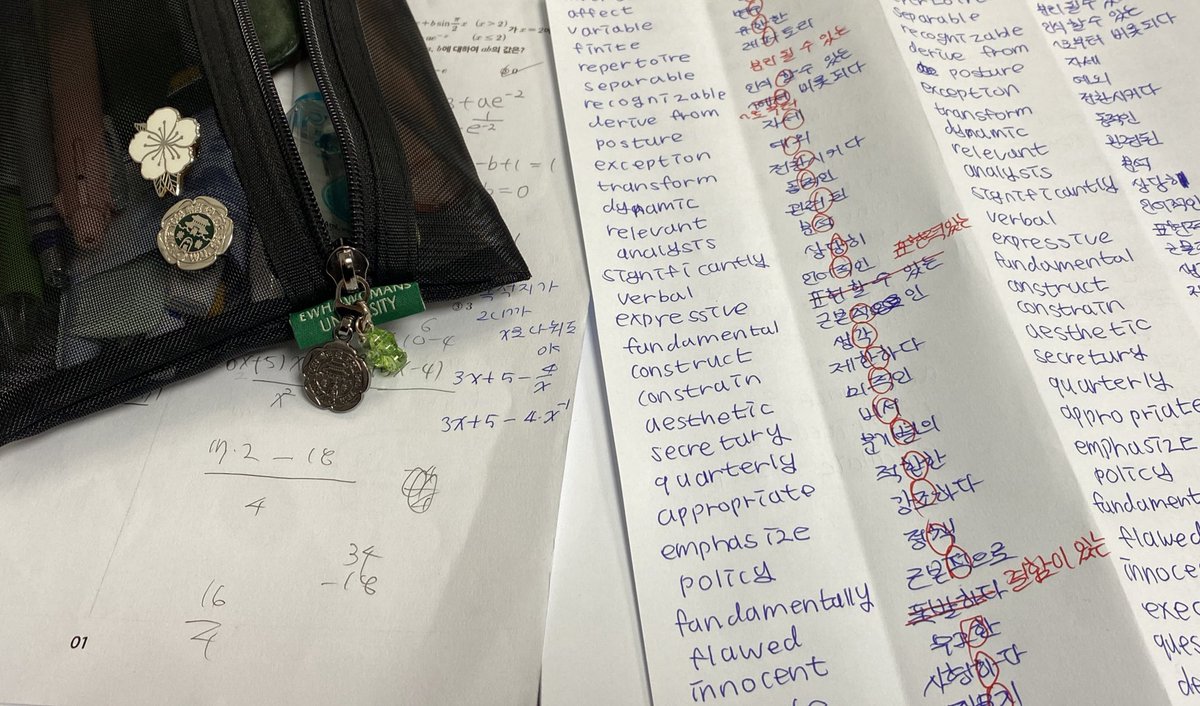 +bsin π/2 x (x>2)
ae⁻ˣ (x≤2)
b에 대하여 ab의 값은?
3+ae⁻²
1
e⁻²
-b+1=1
=0
EWHA WOMANS
UNIVERSITY
2나가
x로 나눠도
OK
x²
3x+5-4/x
3x+5-4·x⁻¹
m·2-18
4
34
-18
16
4
01
affect
variable
finite
repertoire
separable
recognizable
derive from
posture
exception
transform
dynamic
relevant
analysis
significantly
verbal
expressive
fundamental
construct
constrain
aesthetic
secretary
quarterly
appropriate
emphasize
policy
fundamentally
flawed
innocent
유한한
레퍼토리
분리 될 수 있는
인식 할 수 있는
~로부터 비롯되다
자세
예외
전환시키다
동적인
관련된
분석
상당히
언어적인
표현 할 수 있는 표현력있는
근본적인
생각
제한하다
미적인
비서
분기별의
적절한
강조하다
정책
근본적으로
폭발하다 결함이 있는
무고한
separable
recognizable
derive from
posture
exception
transform
dynamic
relevant
analysis
significantly
verbal
expressive
fundamental
construct
constrain
aesthetic
secretary
quarterly
appropriate
emphasize
policy
fundament
flawed
innocen
exec
ques
de
분리 될 수 있는
인식 할 수 있는
~로부터 비롯되다
자세
예외
전환시키다
동적인
관련된
분석
상당히
언어적인